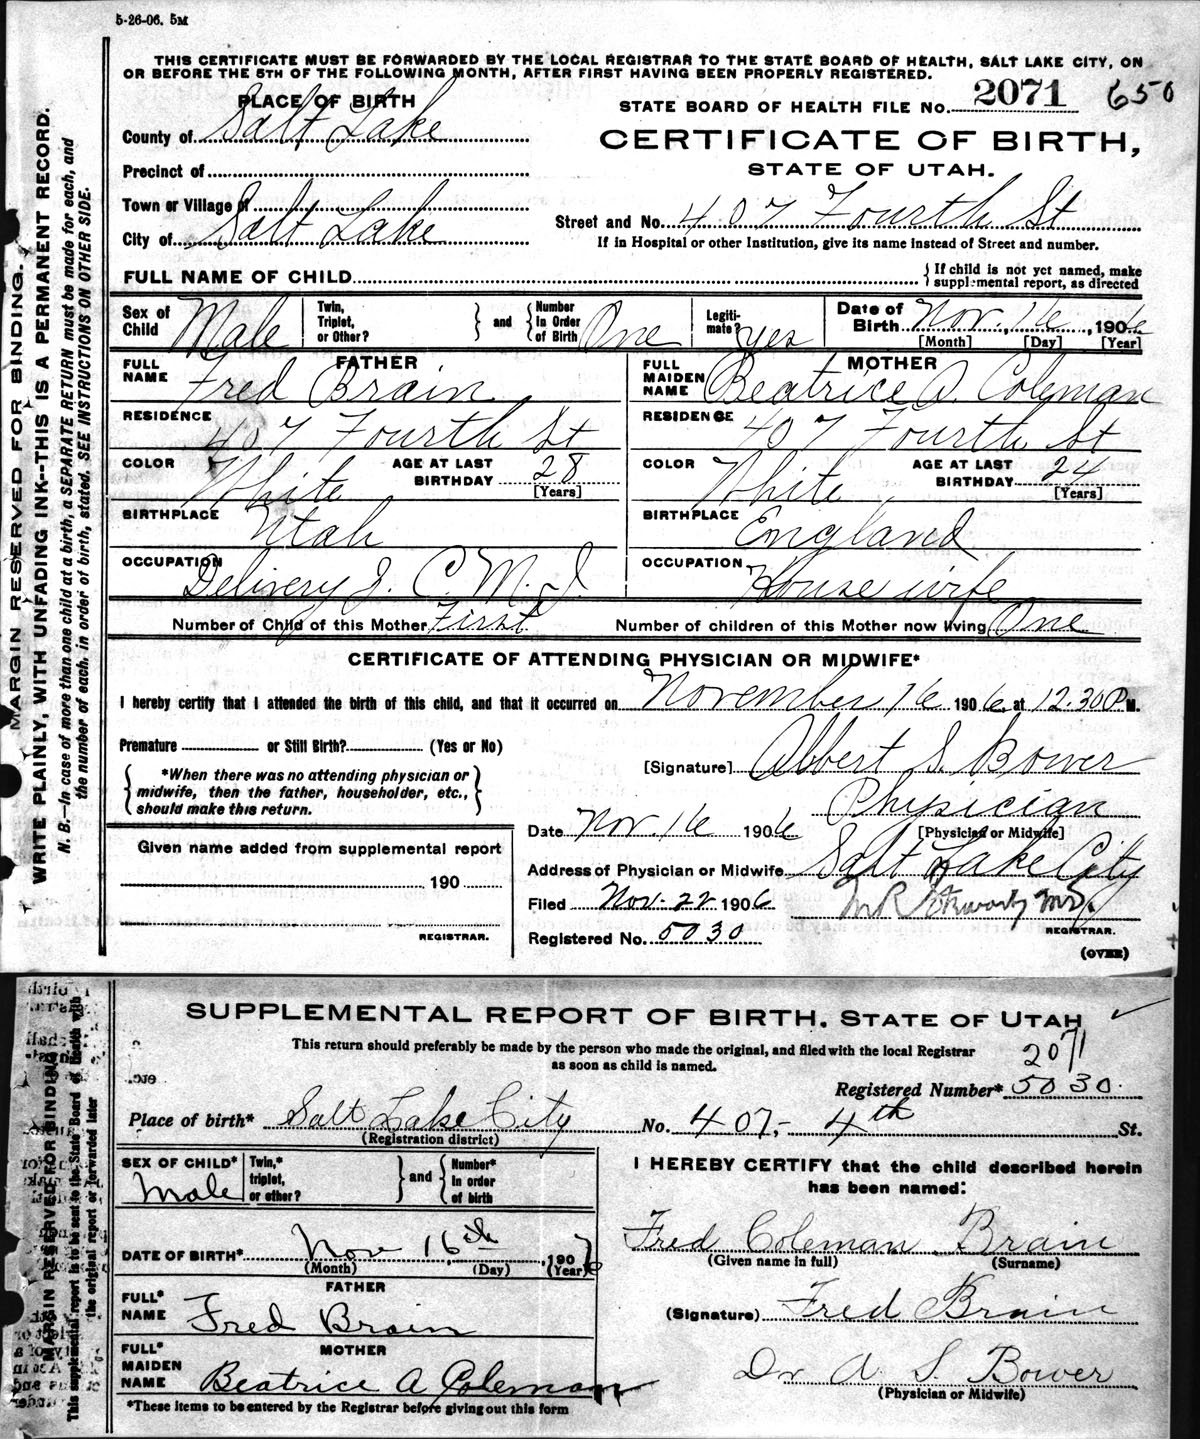 5-26-06. 5M
THIS CERTIFICATE MUST BE FORWARDED BY THE LOCAL REGISTRAR TO THE STATE BOARD OF HEALTH, SALT LAKE CITY, ON
OR BEFORE THE 5TH OF THE FOLLOWING MONTH, AFTER FIRST HAVING BEEN PROPERLY REGISTERED.
PLACE OF BIRTH
STATE BOARD OF HEALTH FILE No. 2071 650
County of Salt Lake
CERTIFICATE OF BIRTH,
STATE OF UTAH.
Precinct of
Town or Village of
Street and No. 407 Fourth St
City of Salt Lake
If in Hospital or other Institution, give its name instead of Street and number.
FULL NAME OF CHILD
If child is not yet named, make
supplemental report, as directed
Sex of Child Male
Twin, Triplet, or Other?
and
Number In Order of Birth One
Legitimate? Yes
Date of Birth Nov. 16, 1906
[Month] [Day] [Year]
FATHER
FULL NAME Fred Brain
RESIDENCE 407 Fourth St
COLOR White AGE AT LAST BIRTHDAY 28
[Years]
BIRTHPLACE Utah
OCCUPATION Delivery Z. C. M. I
MOTHER
FULL MAIDEN NAME Beatrice A. Coleman
RESIDENCE 407 Fourth St
COLOR White AGE AT LAST BIRTHDAY 24
[Years]
BIRTHPLACE England
OCCUPATION House wife
Number of Child of this Mother First Number of children of this Mother now living One
CERTIFICATE OF ATTENDING PHYSICIAN OR MIDWIFE*
I hereby certify that I attended the birth of this child, and that it occurred on November 16 1906, at 12.30 P M.
Premature or Still Birth? (Yes or No)
[Signature] Albert S. Bower
*When there was no attending physician or
midwife, then the father, householder, etc.,
should make this return.
Physician
[Physician or Midwife]
Date Nov. 16 1906
Given name added from supplemental report
Address of Physician or Midwife Salt Lake City
190
Filed Nov. 22 1906
REGISTRAR.
REGISTRAR.
Registered No. 5030
(OVER)
MARGIN RESERVED FOR BINDING.
WRITE PLAINLY, WITH UNFADING INK--THIS IS A PERMANENT RECORD.
N. B.—In case of more than one child at a birth, a SEPARATE RETURN must be made for each, and
the number of each, in order of birth, stated. SEE INSTRUCTIONS ON OTHER SIDE.
SUPPLEMENTAL REPORT OF BIRTH. STATE OF UTAH
This return should preferably be made by the person who made the original, and filed with the local Registrar
as soon as child is named.
2071
Registered Number* 5030.
Place of birth* Salt Lake City No. 407,- 4th St.
(Registration district)
SEX OF CHILD* Male
Twin,* triplet, or other?
and
Number* In order of birth
DATE OF BIRTH* Nov 16th, 1906
(Month) (Day) (Year)
FATHER
FULL* NAME Fred Brain
MOTHER
FULL* MAIDEN NAME Beatrice A Coleman
*These items to be entered by the Registrar before giving out this form
I HEREBY CERTIFY that the child described herein
has been named:
Fred Coleman Brain
(Given name in full) (Surname)
(Signature) Fred Brain
Dr A S. Bower
(Physician or Midwife)
MARGIN RESERVED FOR BINDING
This supplemental report is to be sent to the State Board of Health with
the original report or forwarded later